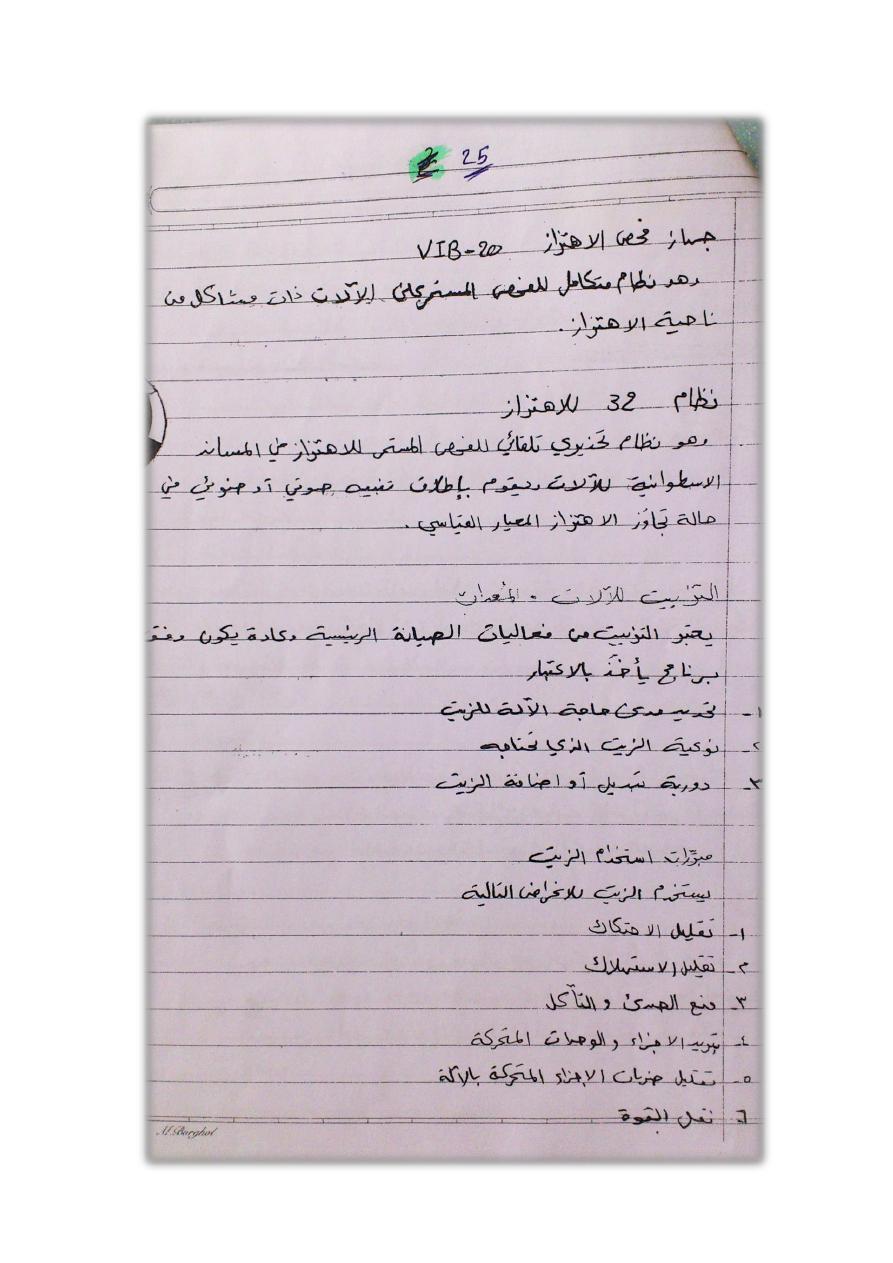 25
جهاز فحص الاهتزاز VIB-20
وهو نظام متكامل للفحص المستمر على الآلات ذات مشاكل من
ناحية الاهتزاز.
نظام 32 للاهتزاز
وهو نظام تحذيري تلقائي للفحص المستمر للاهتزاز في المساند
الاسطوانية للآلات ويقوم بإطلاق تنبيه صوتي أو ضوئي في
حالة تجاوز الاهتزاز المعيار القياسي.
التزييت للآلات و المُعدات
يعتبر التزييت من فعاليات الصيانة الرئيسية وعادة يكون وفق
برنامج يأخذ بالاعتبار
١- تحديد مدى حاجة الآلة للزيت
٢- نوعية الزيت الذي تحتاجه
٣- دورية تبديل أو اضافة الزيت
مبررات استخدام الزيت
يستخدم الزيت للاغراض التالية
١- تقليل الاحتكاك
٢- تقليل الاستهلاك
٣- منع الصدئ والتآكل
٤- تبريد الاجزاء والوحدات المتحركة
٥- تقليل ضربات الاجزاء المتحركة بالآلة
٦- نقل القوة
M.Barghol